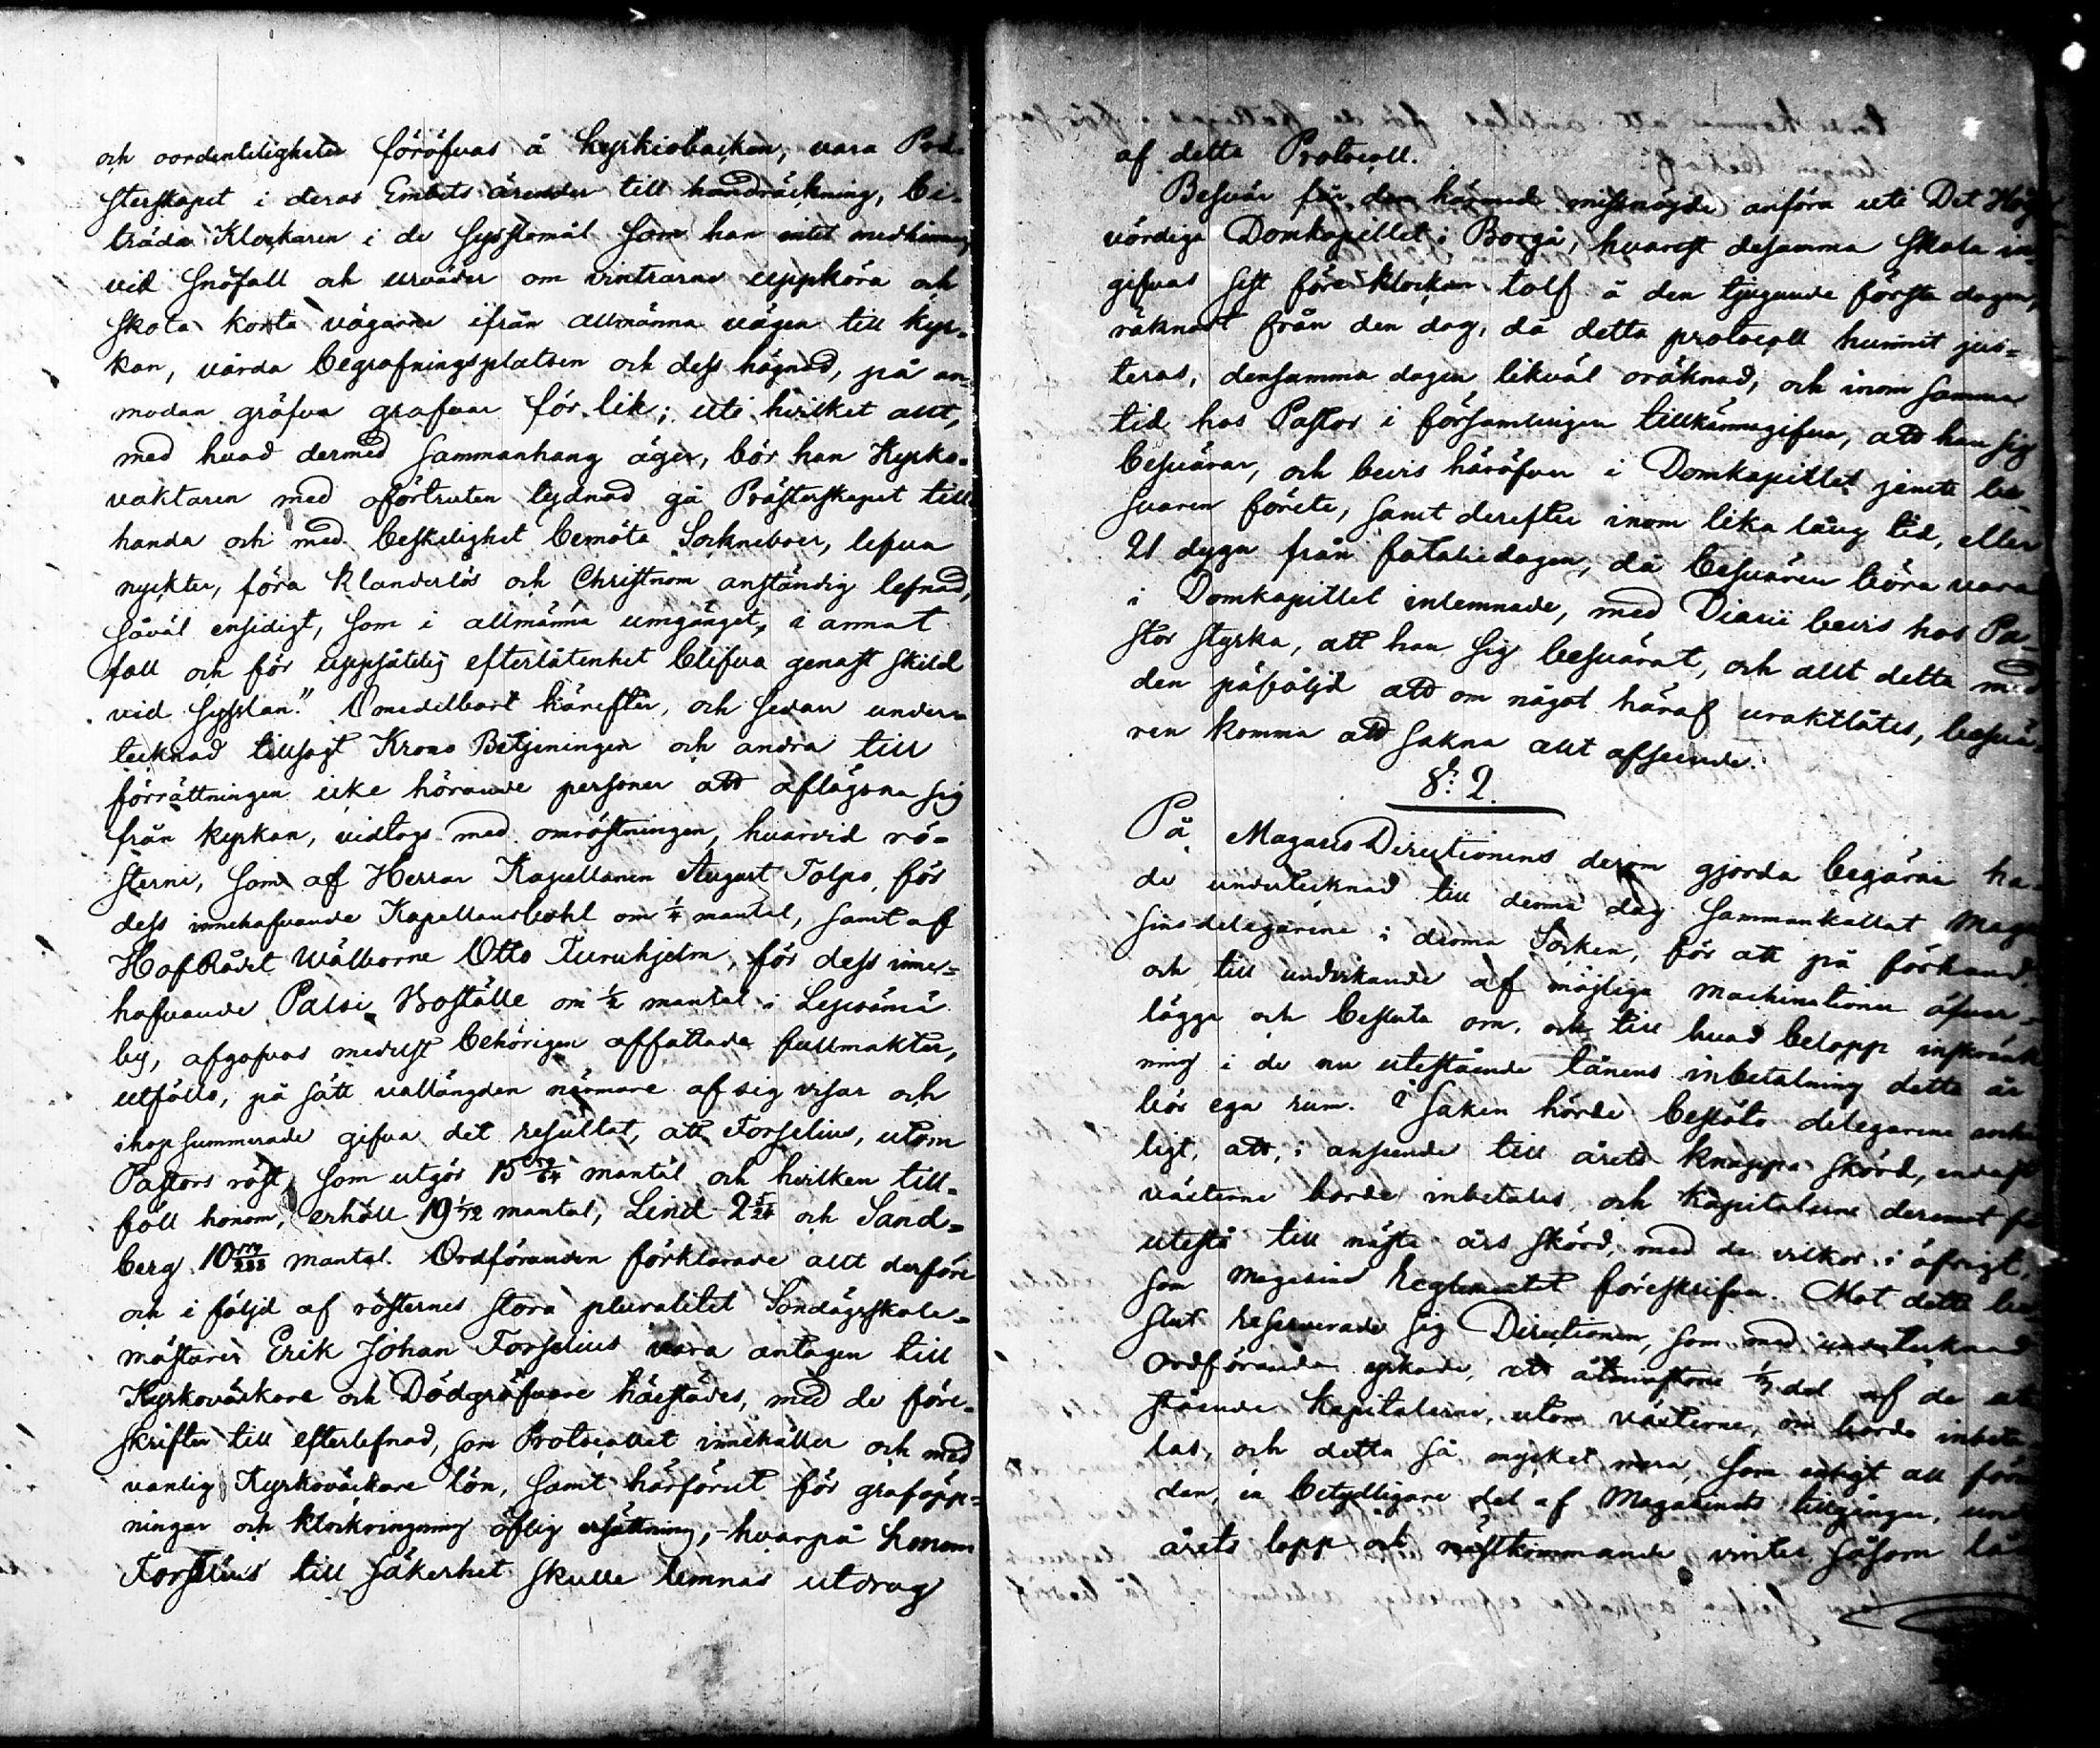 och oordentligheter föröfvas å kyrkiobacken, vara Prä-
sterskapet i deras Embets ärender till handräckning, bi-
träda Klockaren i de Sysslomål som han intet medhinner
vid snöfall och urväder om vintrarne uppköra och
skota korta vägarne ifrån allmänna vägen till kyr-
kan, vårda begrafningsplatsen och dess hägnad, på an-
modan gräfva grafvar för lik; uti hvilket allt,
med hvad dermed sammanhang äger, bör han Kyrko-
vaktaren med oförtruten lydnad gå Prästerskapet till
handa och med beskelighet bemöta Sockneboer, lefva
nyckter, föra klanderlös och Christnom anständig lefnad,
såväl ensidigt, som i allmänna umgänget, i annat
fall och för uppsåtelig efterlåtenhet blifva genast skild
vid sysslan." Omedelbart härefter, och sedan under-
tecknad tillsagt Krono Betjeningen och andra till
förrättningen icke hörande personer att aflägsna sig
från kyrkan, vidtogs med omröstningen, hvarvid rö-
sterne, som af Herrar Kapellanen August Tolpo, för
dess innehafvande Kapellansbohl om 1/4 mantal, samt af
HofRådet Wälborne Otto Furuhjelm, för dess inne-
hafvande Palsi Boställe om 1/2 mantal i
by, afgofvos medelst behörigen affattade fullmakter,
utföllo, på sätt vallängden närmare af sig visar och
ihopsummerade gifva det resultat, att Forselius, utom
Pastors röst, som utgör 15 mantal och hvilken till-
föll honom, erhöll 19 1/72 mantal, Lind 2 och Sand-
berg 10 mantal. Ordföranden förklarade allt derföre
och i följd af rösternes stora pluralitet Söndagsskole-
mästaren Erik Johan Forselius vara antagen till
Kyrkoväckare och Dödgräfvare härstädes, med de före-
skrifter till efterlefnad, som Protocollet innehåller och med
vanlig Kyrkoväckare lön, samt härförut för graföpp-
ningar och klockringning öflig ersättning, hvarpå honom
Forselius till säkerhet skulle lemnas utdrag
af detta Protocoll.
Besvär får den härmed missnöjde anföra uti Det Hög-
vördiga Domkapillet i Borgå, hvarest desamma skola in-
gifvas sist före klockan tolf å den tjugunde första dagen,
räknadt från den dag, då detta protocoll hunnit jus-
teras, densamma dagen likväl oräknad, och inom samma
tid hos Pastor i församlingen tillkännagifva, att han sig
besvärar, och bevis häröfver i Domkapitlet jemte be-
svären förete, samt derefter inom lika lång tid, eller
21 dygn från fataliedagen, då besvären böra vara
i Domkapitlet inlemnade, med Diarii bevis hos Pa-
stor styrka, att han sig besvärat, och allt detta med
den påföljd att om något häraf uraktlåtes, besvä-
ren komma att sakna allt afseende.
§: 2.
På Magasins Directionens derom gjorda begäran ha-
de undertecknad till denna dag sammankallat Maga-
sinsdelegarene i denna Socken, för att på förhand
och till undvikande af möjliga machinationer öfver-
lägga och besluta om, och till hvad belopp inskränk
ning i de nu utestående lånens inbetalning detta år
bör ega rum. I saken hörde beslöto delegarene enhe
ligt, att, i anseende till årets knappa skörd, endast
växterne borde inbetalas och kapitalerne deremot få
utestå till nästa års skörd, med de vilkor i öfrigt,
som Magasins Reglementet föreskrifver. Mot detta be-
slut reserverade sig Directionen, som med undertecknad
Ordförande yrkade, att åtminstone del af de ut-
stående kapitalerne, utom växterne, borde inbeta-
las, och detta så mycket mera, som enligt all förm
dan, en betydligare del af Magasinets tillgångar, und
årets lopp och nästkommande vinter såsom lå